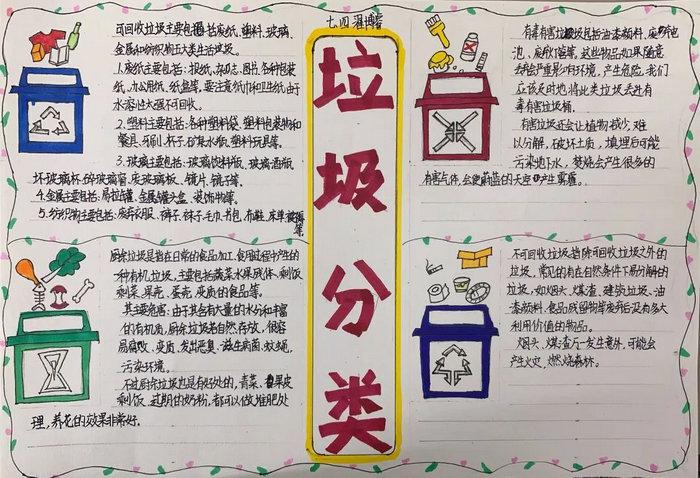 七四
垃圾分类
可回收垃圾主要包括废纸、塑料、玻璃、
金属和纺织物五大类生活垃圾。
1.废纸主要包括:报纸、杂志、图书、各种包装
纸、办公用纸、纸盒等。要注意纸巾和卫生纸由于
水溶性太强不可回收。
2.塑料主要包括:各种塑料袋、塑料包装物和
餐具、牙刷、杯子、矿泉水瓶、塑料玩具等。
3.玻璃主要包括:玻璃饮料瓶、玻璃酒瓶
坏玻璃杯、碎玻璃窗、废玻璃板、镜片、镜子等。
4.金属主要包括:易拉罐、金属罐头盒、装饰物等。
5.纺织物主要包括:废弃衣服、裤子、袜子、毛巾、书包、布鞋、床单、被褥
等。
有毒有害垃圾包括油漆颜料、废电
池、废荧灯管等。这些物品如果随意
丢弃会严重影响环境,产生危险。我们
应该及时地将此类垃圾丢进有
毒有害垃圾桶。
有害垃圾还会让植物减少,难
以分解,破坏土质,填埋后可能
污染地下水,焚烧会产生很多的
有害气体,会使蔚蓝的天空产生雾霾。
厨余垃圾是指在日常的食品加工、食用过程中产生的
一种有机垃圾,主要包括蔬菜水果残体、剩饭
剩菜、果壳、蛋壳、变质的食品等。
其主要危害:由于其含有大量的水分和丰富
的有机质,厨余垃圾若自然存放,很容
易腐败、变质、发出恶臭、滋生病菌、蚊蝇,
污染环境。
不过厨余垃圾也是有好处的,青菜、果皮
剩饭、过期的奶粉,都可以做堆肥处
理,养花的效果非常好。
不可回收垃圾指除可回收垃圾之外的
垃圾,常见的有在自然条件下易分解的
垃圾,如烟头、煤渣、建筑垃圾、油
漆颜料、食品残留物等废弃后没有多大
利用价值的物品。
烟头、煤渣万一发生意外,可能会
产生火灾,燃烧森林。